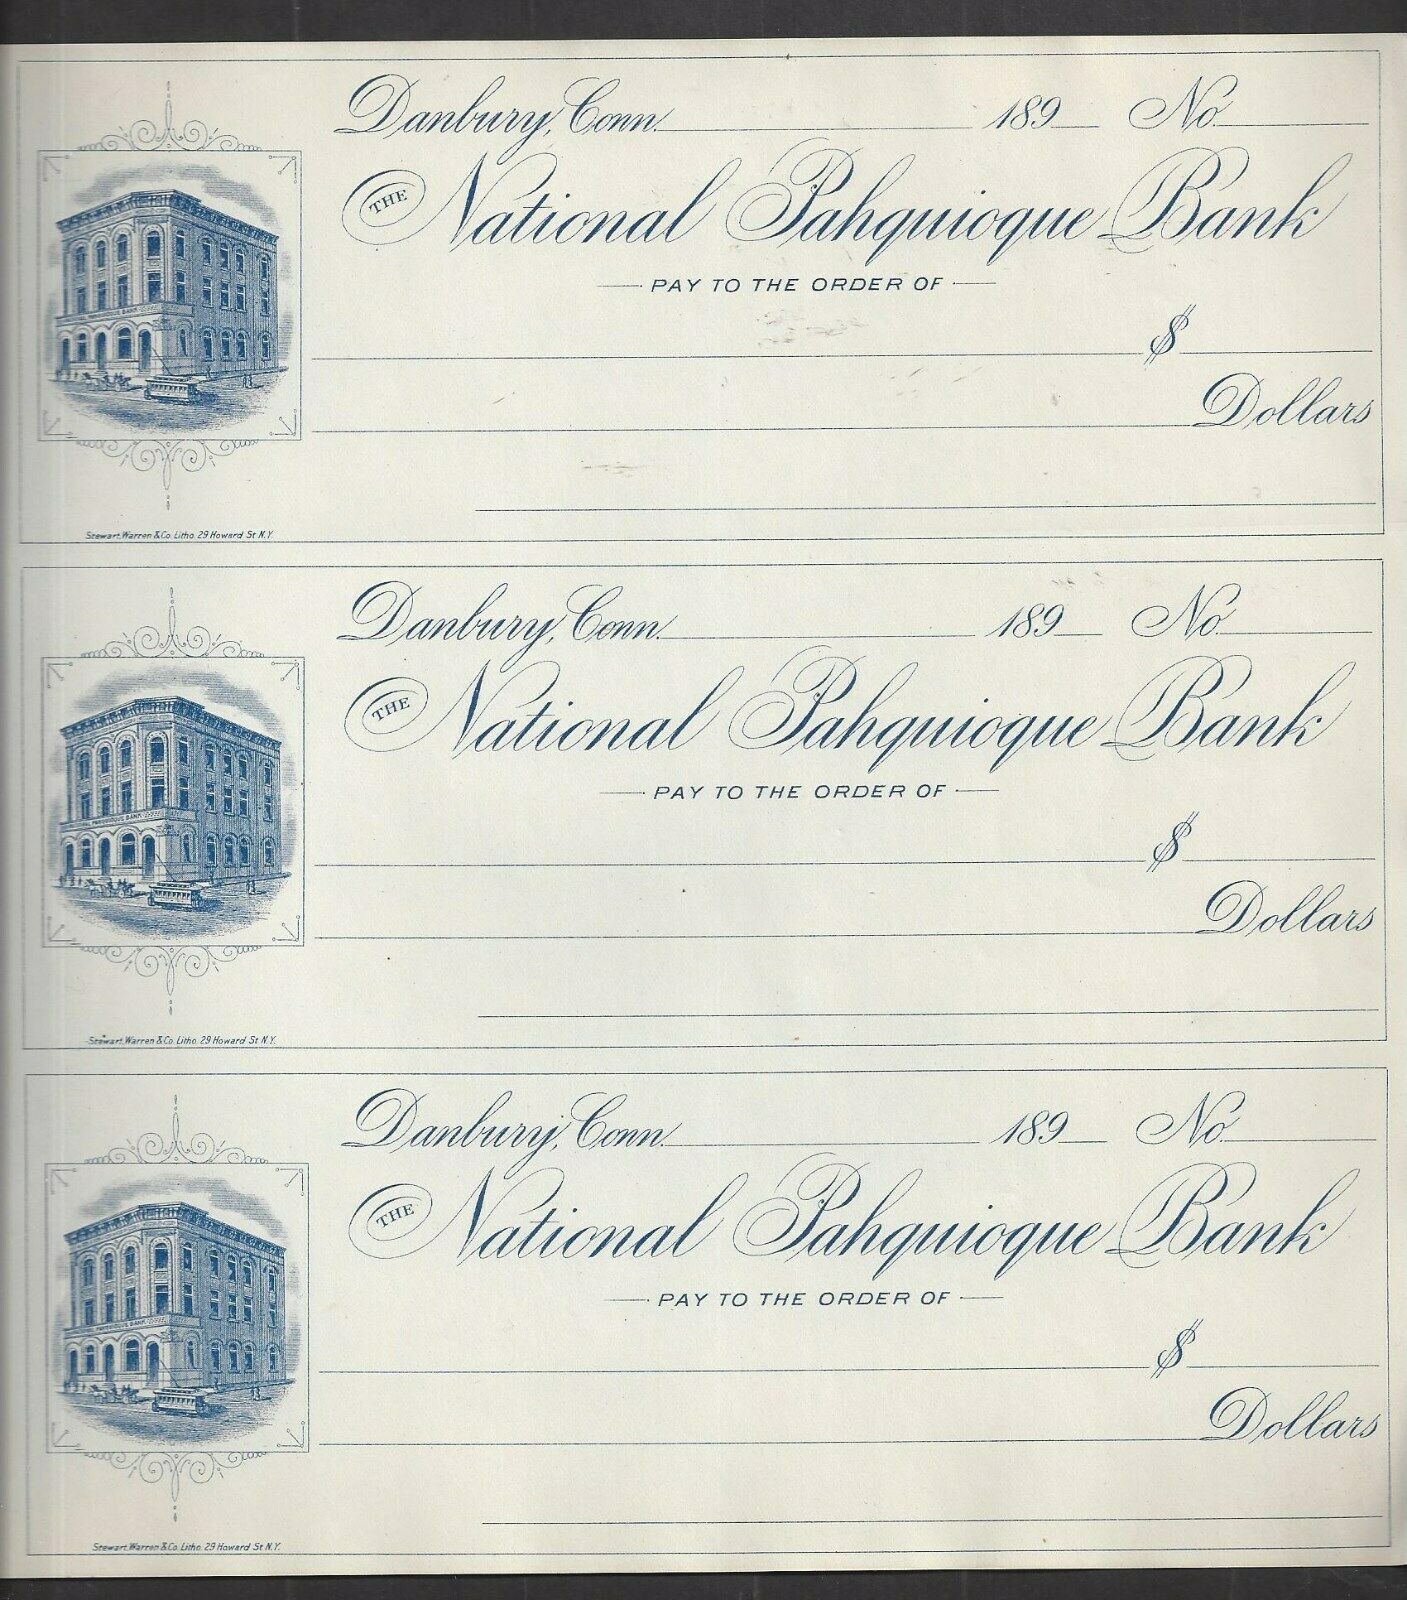 Danbury, Conn. 189 No.
THE National Pahquioque Bank
PAY TO THE ORDER OF
PAHQUIOQUE BANK
$
Dollars
Stewart, Warren & Co. Litho. 29 Howard St N.Y.
Danbury, Conn. 189 No.
THE National Pahquioque Bank
PAY TO THE ORDER OF
PAHQUIOQUE BANK
$
Dollars
Stewart, Warren & Co. Litho. 29 Howard St N.Y.
Danbury, Conn. 189 No.
THE National Pahquioque Bank
PAY TO THE ORDER OF
PAHQUIOQUE BANK
$
Dollars
Stewart, Warren & Co. Litho. 29 Howard St N.Y.